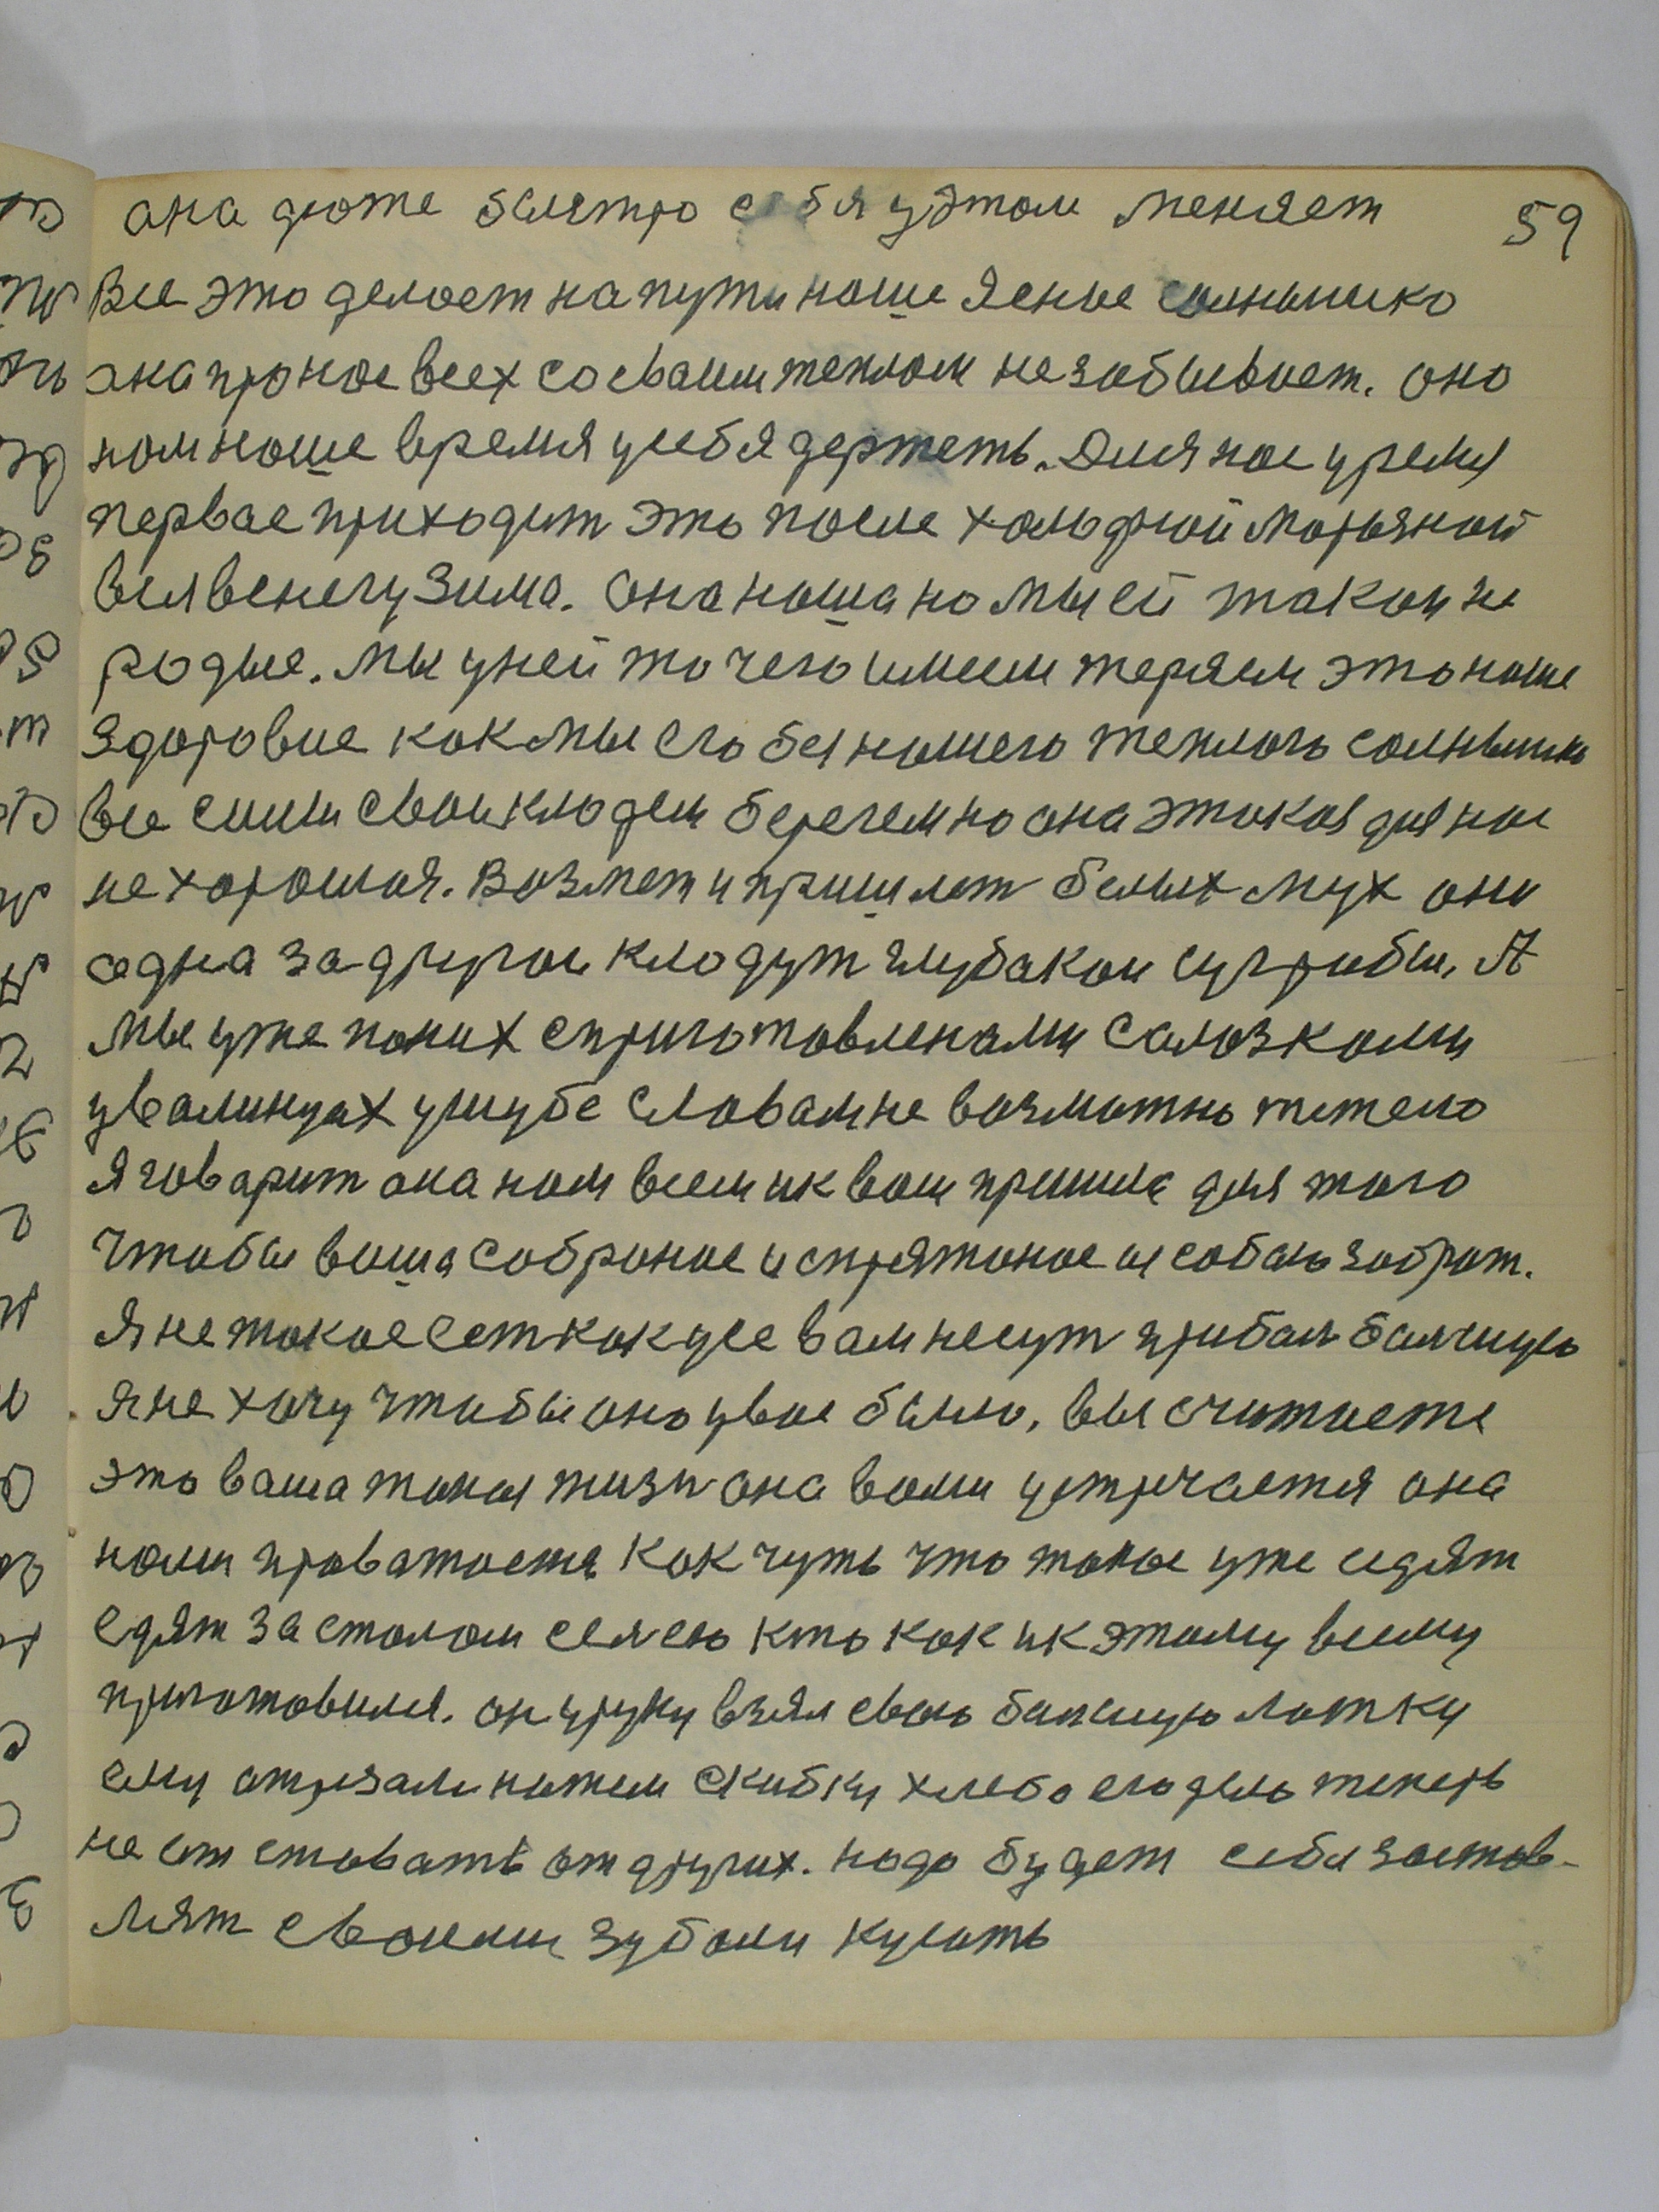 она дюже быстро себя у этом меняет 59
Все это делает на пути наше Ясное солнышко
она про нас всех со своим теплом не забывает. оно
нам наше время у себя держеть. Для нас уремя
первое приходит это после холодной морозной
зима. Она наша но мы ей таком не
родые. мы у ней то чего имеем теряем это наше
здоровие как мы его без нашего теплого солнышка
все силы свои кладем беречем но она этакоя для нас
не хорошая. Возмет и пришлет белых мух они
одна за другои кладут глубакои сугрибы, А
мы уже по них с приготовленами салазками
у валинцах у шубе словам не возможно тежело
Я говарит она нам всем и к вам пришла для того
чтобы ваша собраное и спрятоное и собаю забрат.
Я не такое ест как усе вам несут прибаль балшую
я не хочу чтобы оно у вас было, вы считаете
это ваша такая жизн она вами устричается она
нами проватается как чуть что такое уже сидят
едят за столом семею кто как и к этому всему
приготовился. он у руку взял сваю балшую ложку
ему отрезали ножем скибку хлеба его дело теперь
не отставать от других. надо будет себя застав-
лят своими зубами кусать